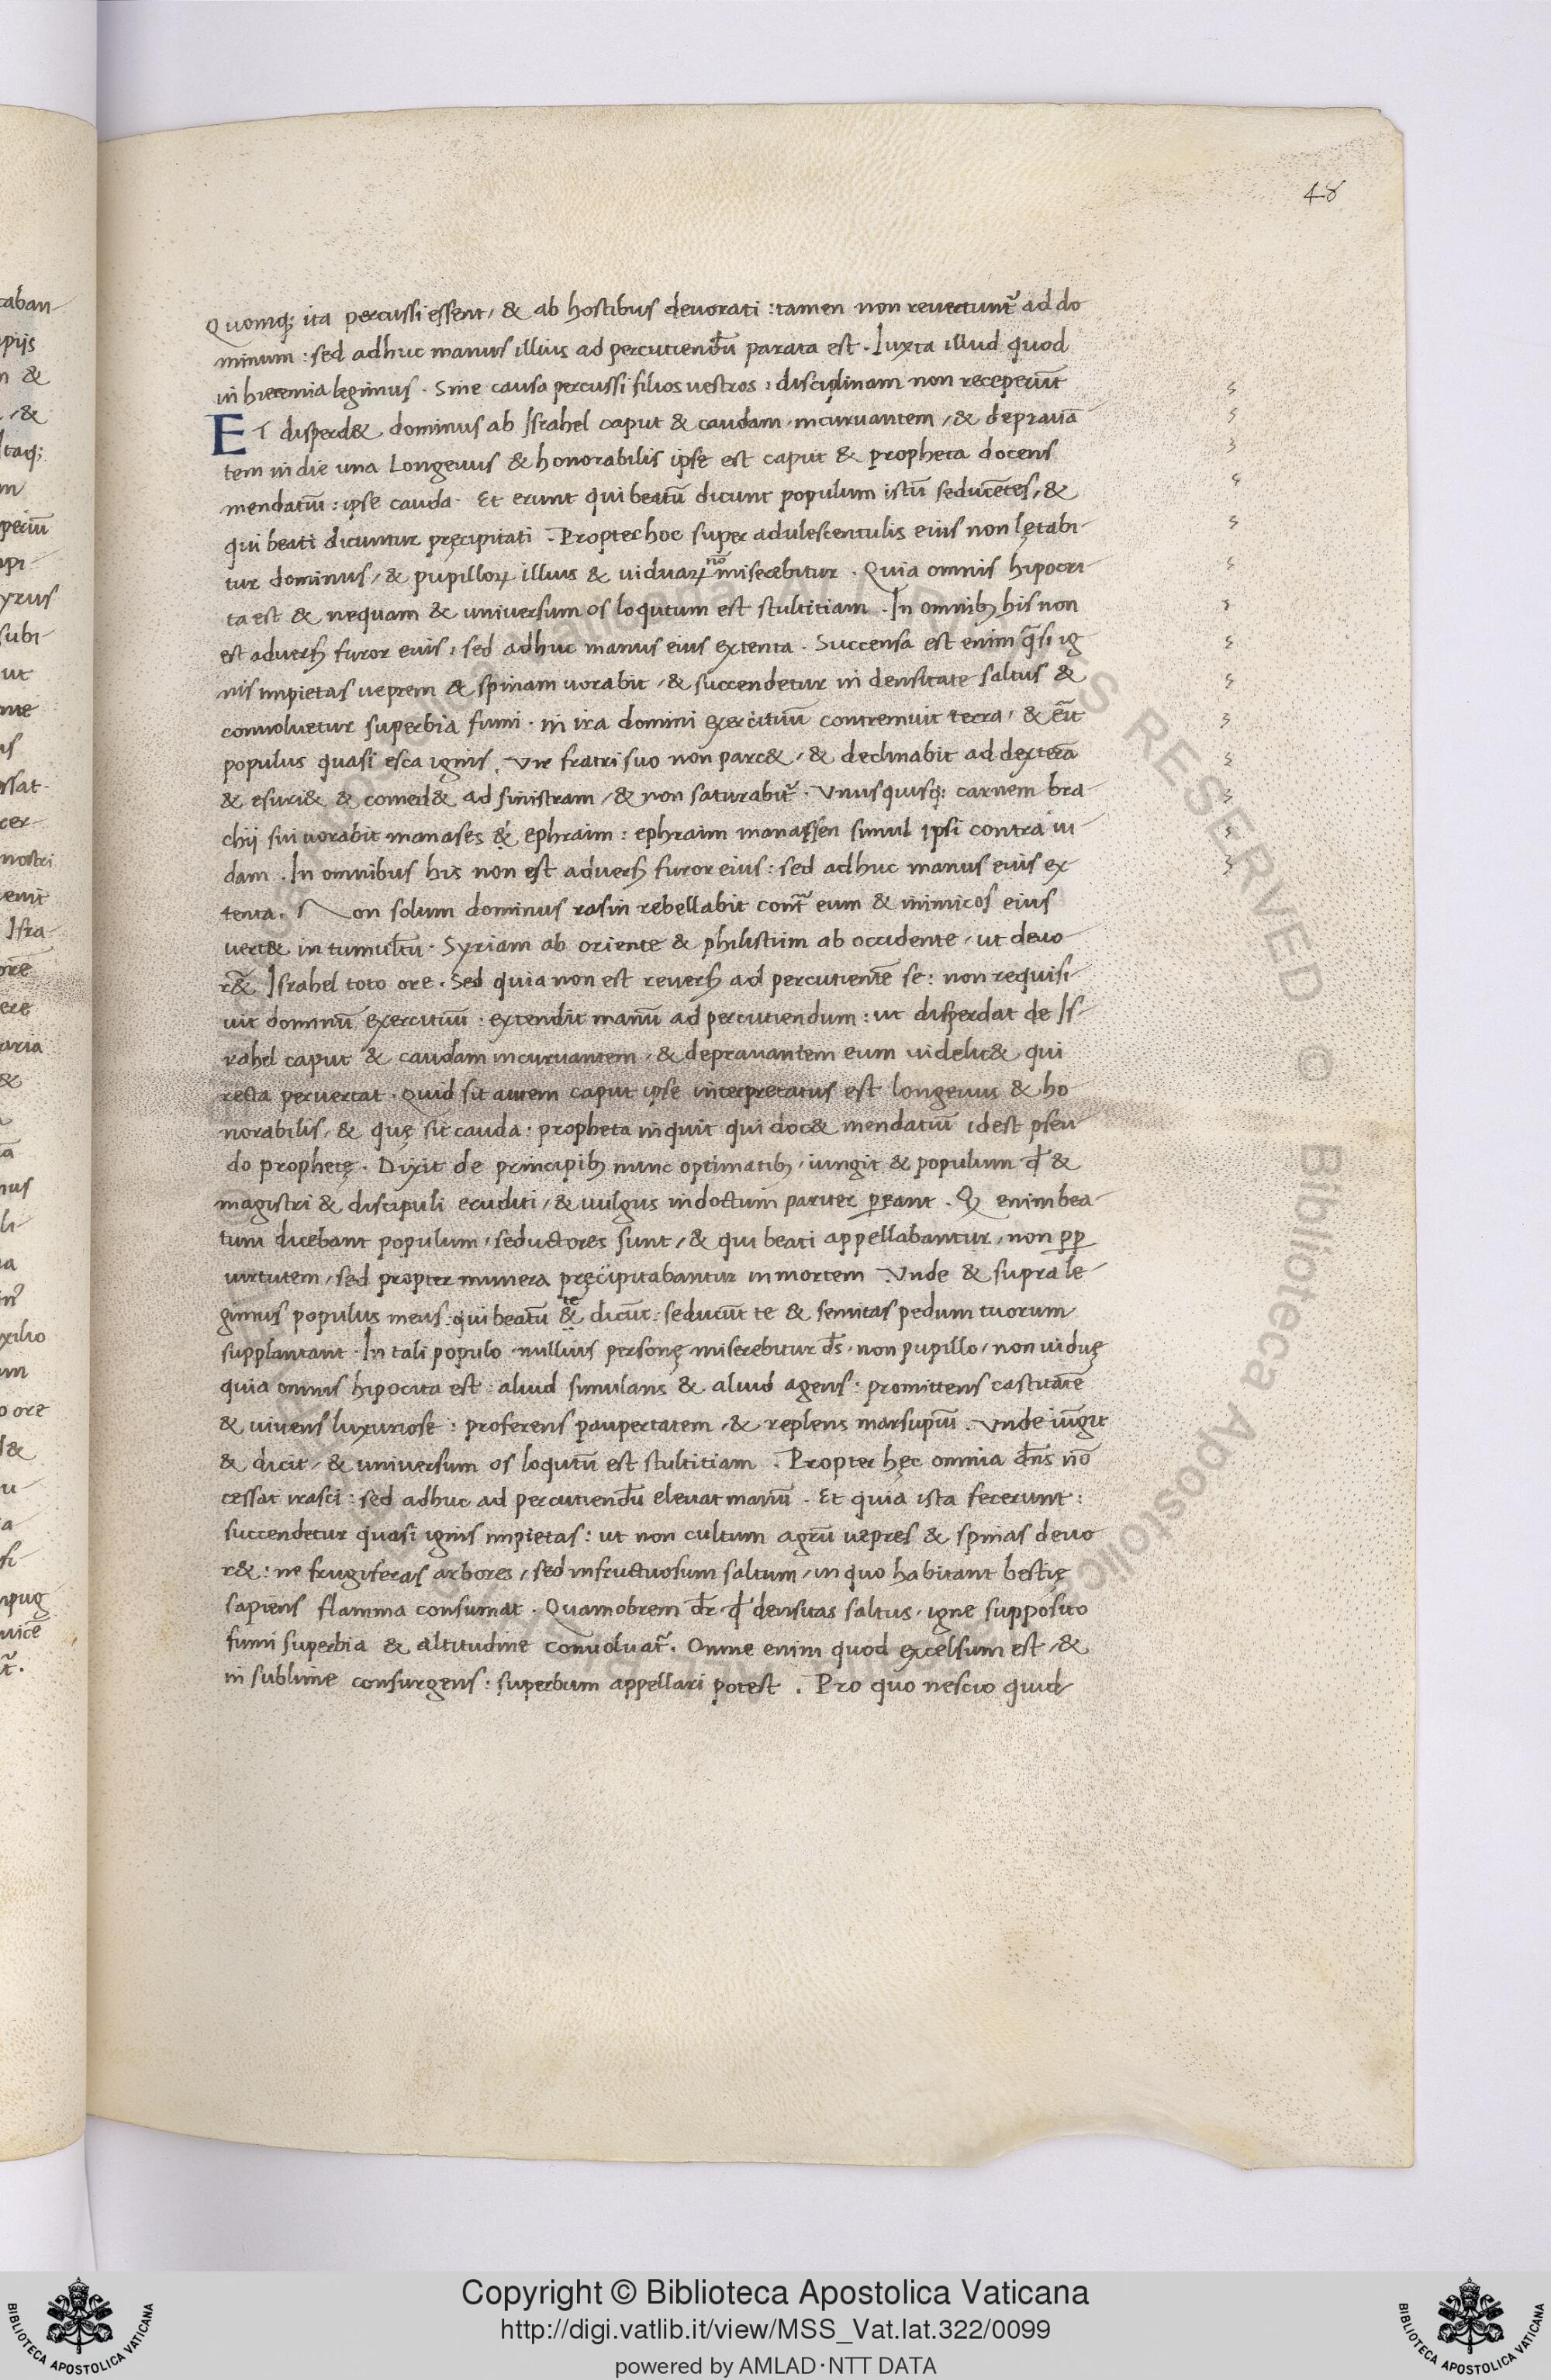 48
Quomqꝫ ita percussi essent, & ab hostibus deuorati : tamen non reuertunt᷑ ad do
minum : sed adhuc manus illius ad percutiendū parata est . Iuxta illud quod
in hieremia legimus . Sine causa percussi filios uestros : disciplinam non receperūt
ET disperd& dominus ab Israhel caput & caudam incuruantem, & deprauā
tem in die una Longeuus & honorabilis ipse est caput & propheta docens
mendatiū : ipse cauda . Et erunt qui beatū dicunt populum istū seducētes, &
qui beati dicuntur pręcipitati . Propter hoc super adulescentulis eius non lętabi-
tur dominus, & pupilloꝝ illius & uiduaꝝ nō miserebitur . Quia omnis hipocri-
ta est & nequam & uniuersum os loqutum est stultitiam . In omnibꝫ his non
est aduersꝫ furor eius : sed adhuc manus eius extenta . Succensa est enim q̄si ig
nis impietas ueprem & spinam uorabit, & succendetur in densitate saltus &
conuoluetur superbia fumi . in ira domini exercituū contremuit terra, & erit
populus quasi esca ignis . Vir fratri suo non parc&, & declinabit ad dexterā
& esuri& & comed& ad sinistram, & non saturabit᷑ . Vnusquisqꝫ carnem bra-
chij sui uorabit manases & ephraim : ephraim manassen simul ipsi contra iu
dam . In omnibus his non est aduersꝫ furor eius : sed adhuc manus eius ex
tenta . Non solum dominus rasin rebellabit cont᷑ eum & inimicos eius
uert& in tumultū . Syriam ab oriente & philistiim ab occidente, ut deuo-
r& Israhel toto ore . Sed quia non est reuersꝫ ad percutientē se : non requisi-
uit dominū exercituū : extendit manū ad percutiendum : ut disperdat de Is-
rahel caput & caudam incuruantem, & deprauantem eum uidelic& qui
recta peruertat . Quid sit autem caput ipse interpretatus est longeuus & ho
norabilis, & quę sit cauda : propheta inquit qui doc& mendatiū idest pseu-
do prophetę . Dixit de principibꝫ nunc optimatibꝫ, iungit & populum qđ &
magistri & discipuli eruditi, & uulgus indoctum pariter ꝑeant . Qꝫ enim bea-
tum dicebant populum, seductores sunt, & qui beati appellabantur, non ꝑꝑ
uirtutem, sed propter munera pręcipitabantur in mortem . Vnde & supra le-
gimus populus meus : qui beatū te & dicūt : seducūt te & semitas pedum tuorum
supplantant . In tali populo nullius personę miserebitur ds̄, non pupillo, non uiduę
quia omnis hipocrita est : aliud simulans & aliud agens : promittens castitatē
& uiuens luxuriose : proferens paupertatem, & replens marsupiū . Vnde iūgit
& dicit, & uniuersum os loqutū est stultitiam . Propter hęc omnia dn̄s nō
cessat irasci : sed adhuc ad percutiendū eleuat manū . Et quia ista fecerunt :
succendetur quasi ignis impietas : ut non cultum agrū uepres & spinas deuo
r& : ne frugiferas arbores, sed infructuosum saltum, in quo habitant bestię
sapiens flamma consumat . Quamobrem dr̄ . qđ densitas saltus, igne supposito
fumi superbia & altitudine conuoluat᷑ . Omne enim quod excelsum est, &
in sublime consurgens : superbum appellari potest . Pro quo nescio quid
Copyright © Biblioteca Apostolica Vaticana
http://digi.vatlib.it/view/MSS_Vat.lat.322/0099
powered by AMLAD·NTT DATA